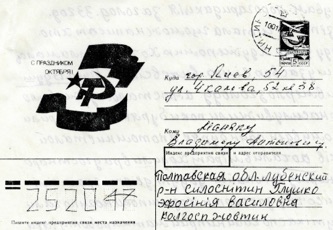 С ПРАЗДНИКОМ
ОКТЯБРЯ!
Куда гор. Киев, 54
ул. Чкалова, 52 кв 38
Кому Маняку
Владимиру Антоновичу
Индекс предприятия связи и адрес отправителя
Полтавская обл. Лубенский
р-н Силоснитин Глушко
Эфосінія Василовка
Колгосп Жовтин
252047
Пишите индекс предприятия связи места назначения